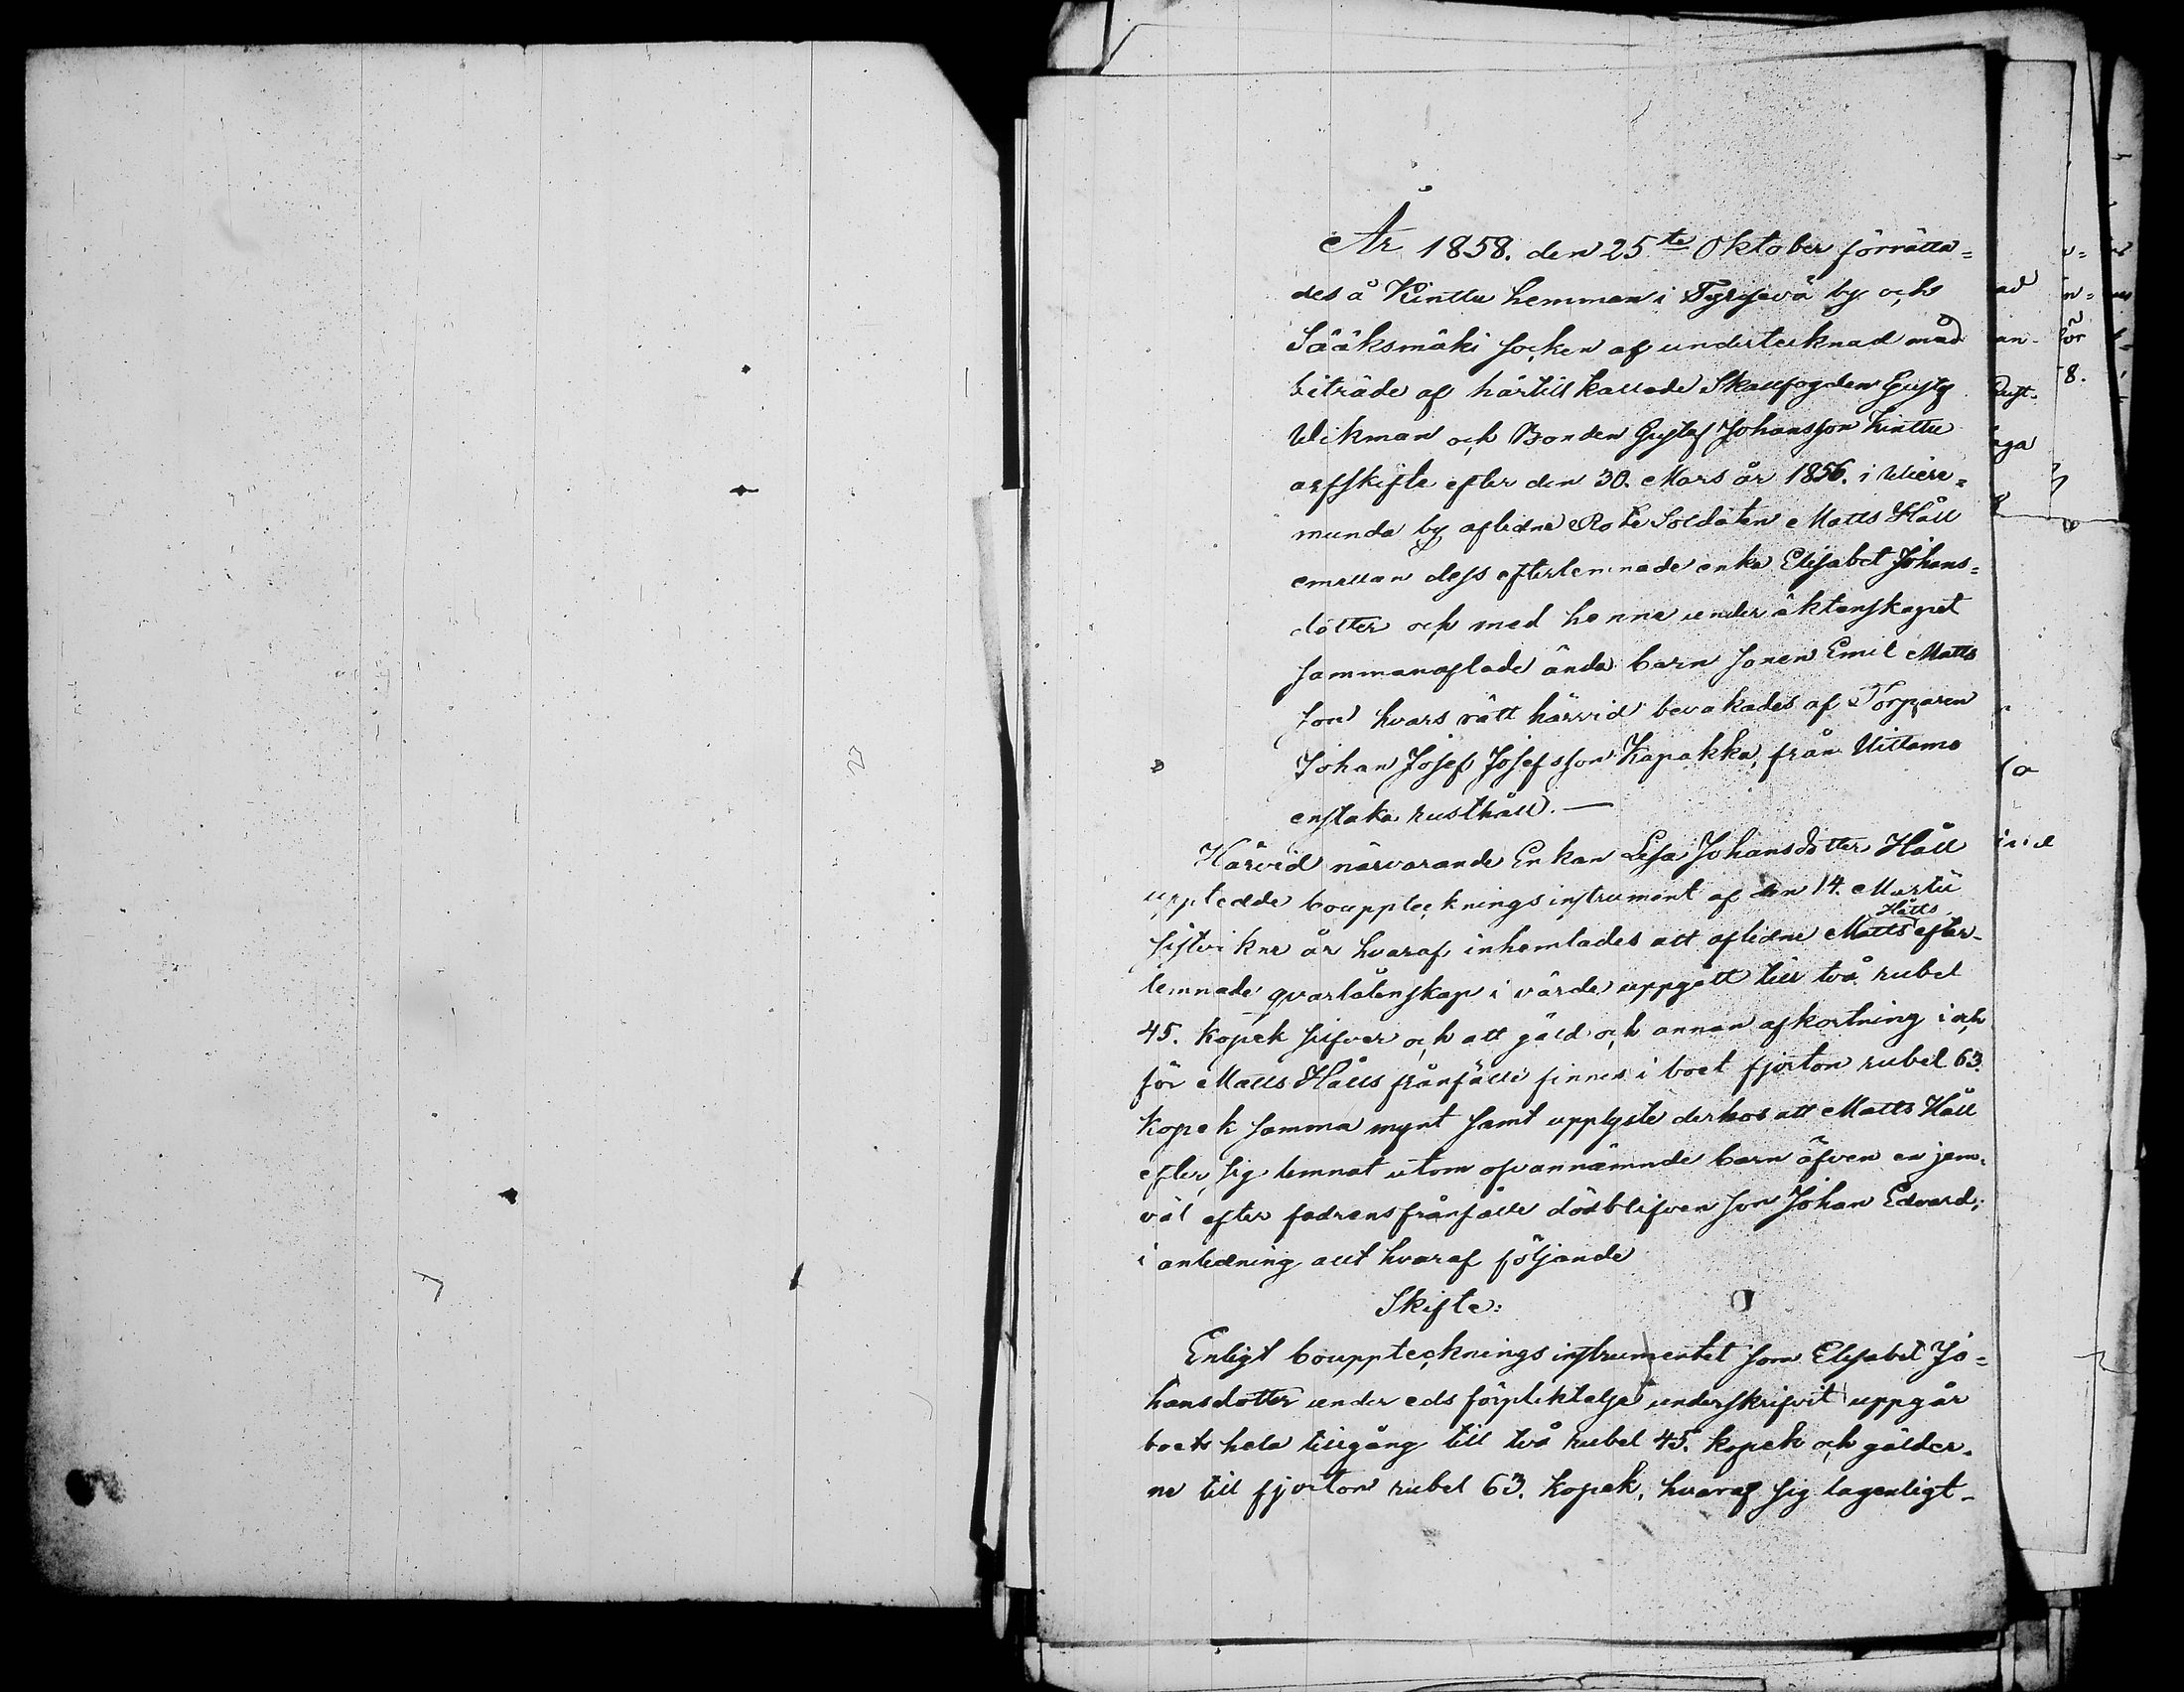 År 1858. den 25te Oktober förrätta=
des å Kinttu hemman i Tyryevä by och
Sääksmäki socken af undertecknad med
biträde af härtill kallade Skallfogden Gustaf
Wikman och Bonden Gustaf Johansson Kinttu
arfskifte efter den 30. Mars år 1856. i Uiere=
munda by aflidne Rote Soldaten Matts Håll
emellan dess efterlemnade enka Elisabet Johans=
dotter och med henne under äktenskapet
sammanaflade ända barn sonen Emil Matts
son hvars rätt härvid bevakades af Torparen
Johan Josef Josefsson Kapakka, från Uittamo
enstaka rusthåll. —
Härvid närvarande Enkan Lisa Johansdotter Håll
uppledde bouppteckningsinstrument af den 14. Martii
sistvikne år hvaraf inhemtades att aflidne Matts Hålls efter-
lemnade qvarlåtenskap i värde uppgått till två rubel
45. kopek silfver och att gäld och annan afkortning i och
för Matts Hålls frånfälle finnes i boet fjorton rubel 63.
kopek samma mynt samt upplyste derhos att Matts Håll
efter sig lemnat utom ofvannämnde barn äfven en jem-
väl efter fadrens frånfälle dödblifven son Johan Edvard;
i anledning allt hvaraf följande
Skifte:
Enligt bouppteckningsinstrumentet som Elisabet Jo=
hansdotter under eds förpliktelse underskrifvit uppgår
boets hela tillgång till två rubel 45. kopek och gälder-
na till fjorton rubel 63. kopek, hvaraf sig lagenligt-